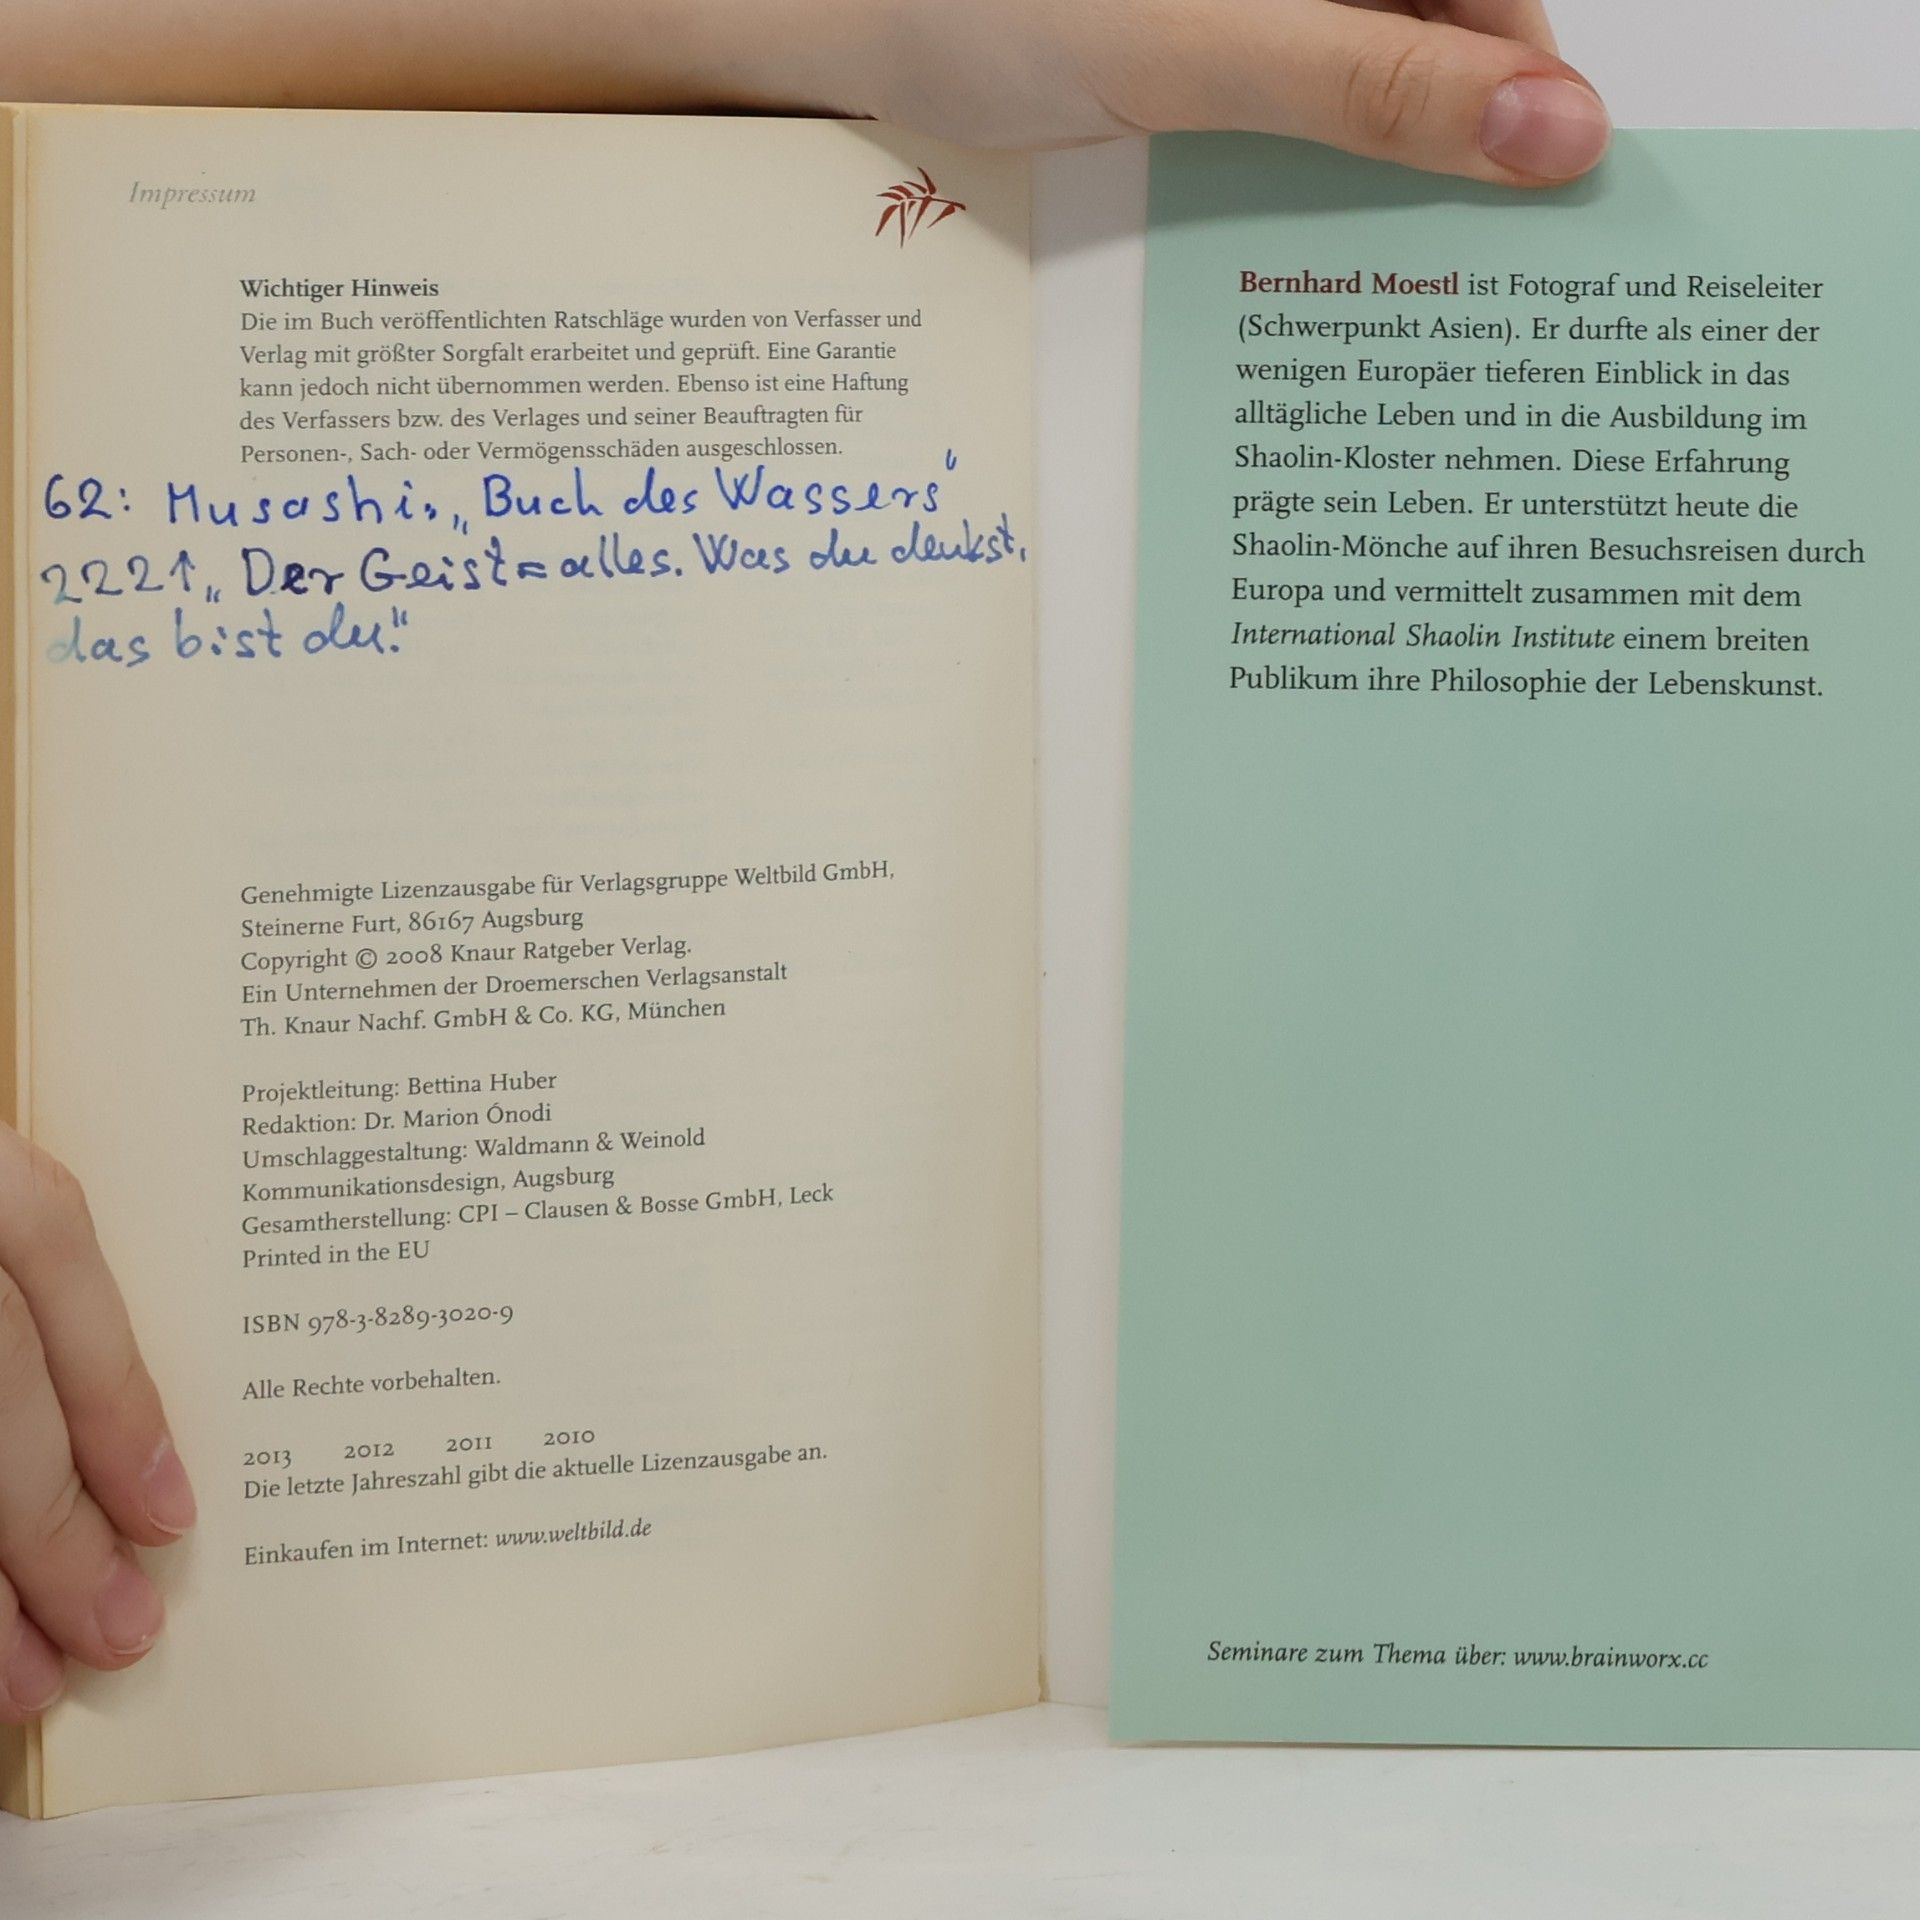 Impressum
Wichtiger Hinweis
Die im Buch veröffentlichten Ratschläge wurden von Verfasser und
Verlag mit größter Sorgfalt erarbeitet und geprüft. Eine Garantie
kann jedoch nicht übernommen werden. Ebenso ist eine Haftung
des Verfassers bzw. des Verlages und seiner Beauftragten für
Personen-, Sach- oder Vermögensschäden ausgeschlossen.
62: Musashi, „Buch des Wassers“
222↑ „Der Geist = alles. Was du denkst,
das bist du.“
Genehmigte Lizenzausgabe für Verlagsgruppe Weltbild GmbH,
Steinerne Furt, 86167 Augsburg
Copyright © 2008 Knaur Ratgeber Verlag.
Ein Unternehmen der Droemerschen Verlagsanstalt
Th. Knaur Nachf. GmbH & Co. KG, München
Projektleitung: Bettina Huber
Redaktion: Dr. Marion Ónodi
Umschlaggestaltung: Waldmann & Weinold
Kommunikationsdesign, Augsburg
Gesamtherstellung: CPI – Clausen & Bosse GmbH, Leck
Printed in the EU
ISBN 978-3-8289-3020-9
Alle Rechte vorbehalten.
2013 2012 2011 2010
Die letzte Jahreszahl gibt die aktuelle Lizenzausgabe an.
Einkaufen im Internet: www.weltbild.de
Bernhard Moestl ist Fotograf und Reiseleiter
(Schwerpunkt Asien). Er durfte als einer der
wenigen Europäer tieferen Einblick in das
alltägliche Leben und in die Ausbildung im
Shaolin-Kloster nehmen. Diese Erfahrung
prägte sein Leben. Er unterstützt heute die
Shaolin-Mönche auf ihren Besuchsreisen durch
Europa und vermittelt zusammen mit dem
International Shaolin Institute einem breiten
Publikum ihre Philosophie der Lebenskunst.
Seminare zum Thema über: www.brainworx.cc